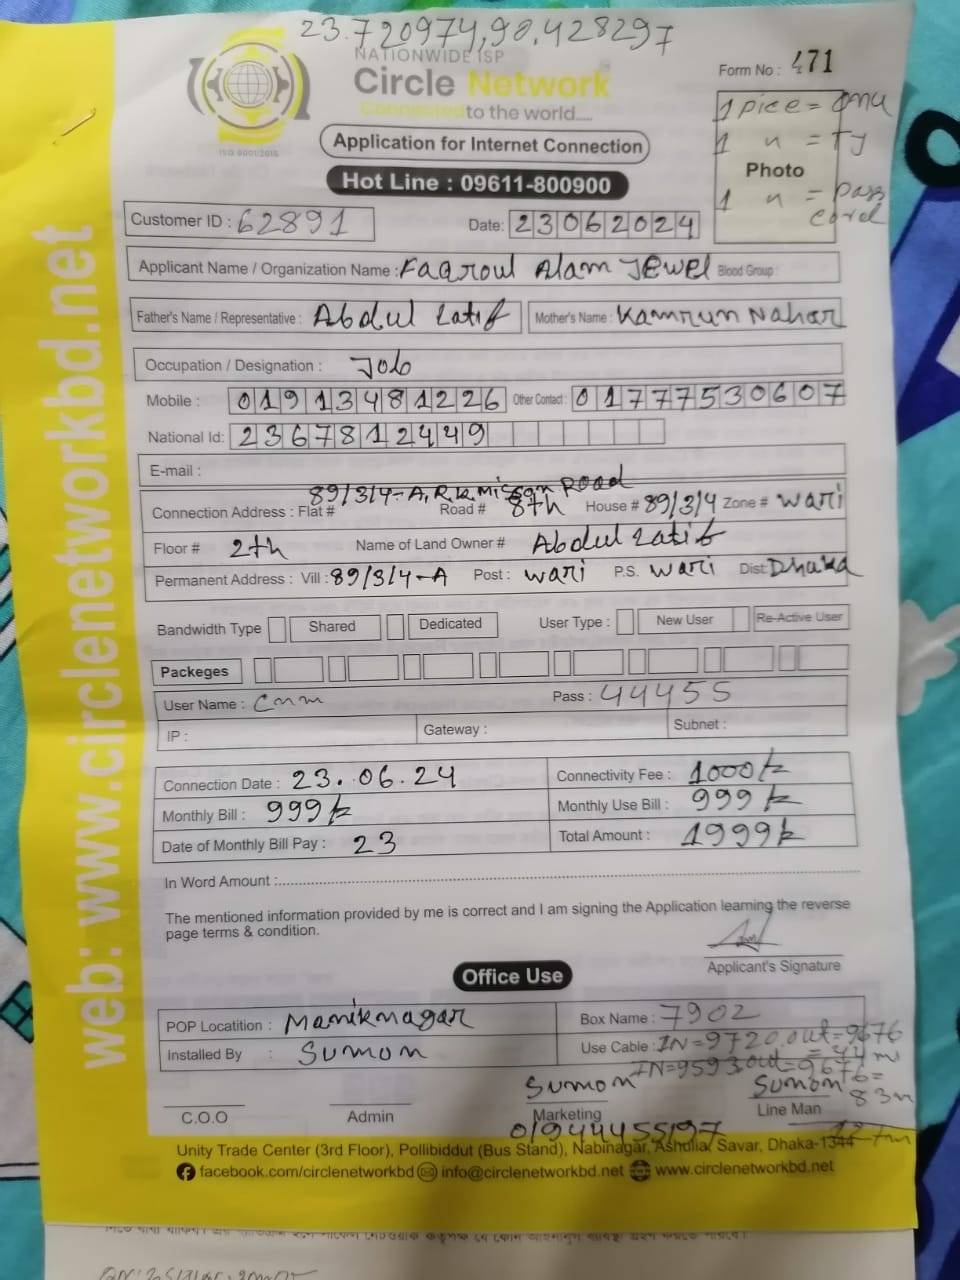 23.720974,90.428297
NATIONWIDE ISP
Circle Network
Connected to the world.....
ISO 9001:2015
Form No : 471
1 pice = onu
1 n = TJ
Photo
1 n = pass
corel
Application for Internet Connection
Hot Line : 09611-800900
Customer ID : 62891
Date: 23062024
Applicant Name / Organization Name : Faqroul Alam Jewel Blood Group :
Father's Name / Representative : Abdul Latif Mother's Name : Kamrun Nahar
Occupation / Designation : Job
Mobile : 01913481226 Other Contact : 01777530607
National Id: 2367812449
E-mail :
89/3/4-A, R.K. Mission Road
Connection Address : Flat # Road # 8th House # 89/3/4 Zone # wari
Floor # 2th Name of Land Owner # Abdul Latif
Permanent Address : Vill : 89/3/4-A Post : wari P.S. wari Dist: Dhaka
Bandwidth Type Shared Dedicated User Type : New User Re-Active User
Packeges
User Name : cnm Pass : 44455
IP : Gateway : Subnet :
Connection Date : 23.06.24 Connectivity Fee : 1000/=
Monthly Bill : 999/= Monthly Use Bill : 999/=
Date of Monthly Bill Pay : 23 Total Amount : 1999/=
In Word Amount :
The mentioned information provided by me is correct and I am signing the Application learning the reverse
page terms & condition.
Applicant's Signature
Office Use
POP Locatition : Maniknagar Box Name : 7902
Installed By : Sumon Use Cable : IN=9720,out=9676
=44m
IN=9593,out=9676=
83m
Sumon Sumon
C.O.O Admin Marketing Line Man
01944455197
127m
Unity Trade Center (3rd Floor), Pollibiddut (Bus Stand), Nabinagar, Ashulia, Savar, Dhaka-1344
facebook.com/circlenetworkbd info@circlenetworkbd.net www.circlenetworkbd.net
web: www.circlenetworkbd.net